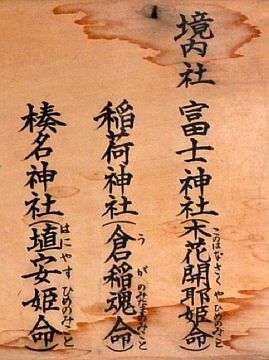 境内社
富士神社(木花開耶姫命)
このはなさくやひめのみこと
稲荷神社(倉稲魂命)
うがのみたまのみこと
榛名神社(埴安姫命)
はにやすひめのみこと